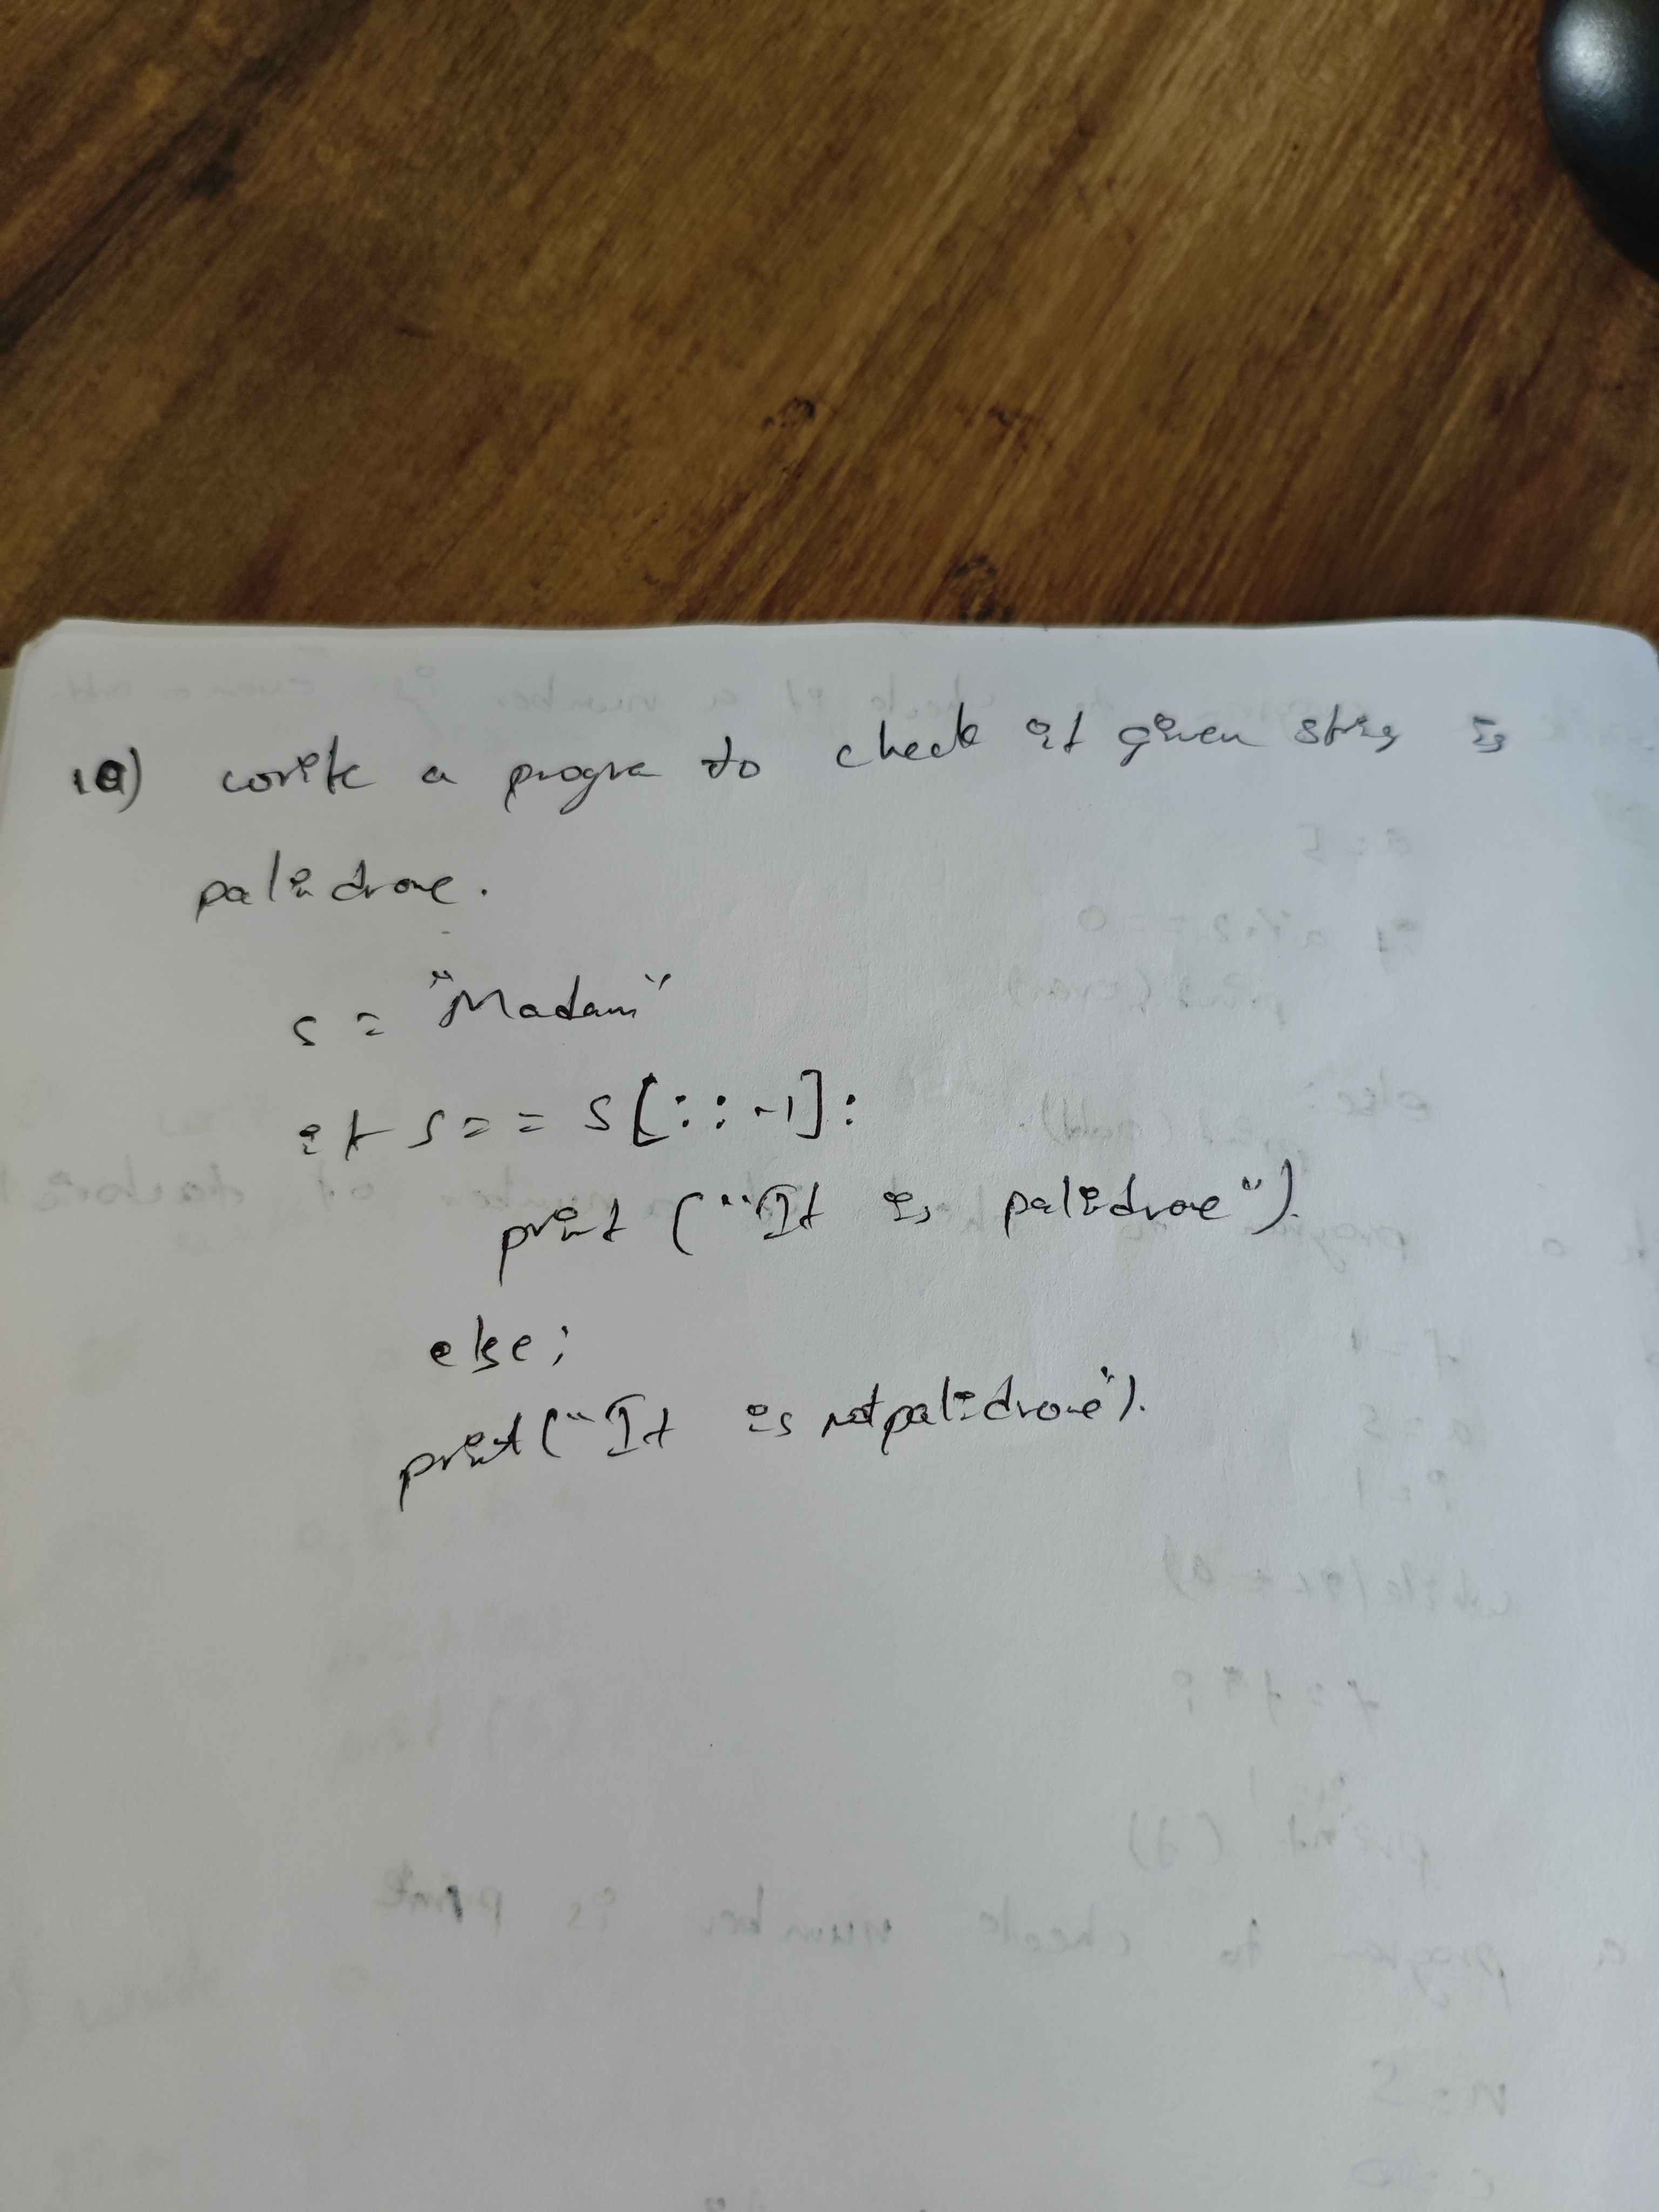 10) write a progra to check if given string is
palindrome.
s = "Madam"
if s == s[::-1]:
print ("It is palindrome").
else;
print("It is not palindrome").